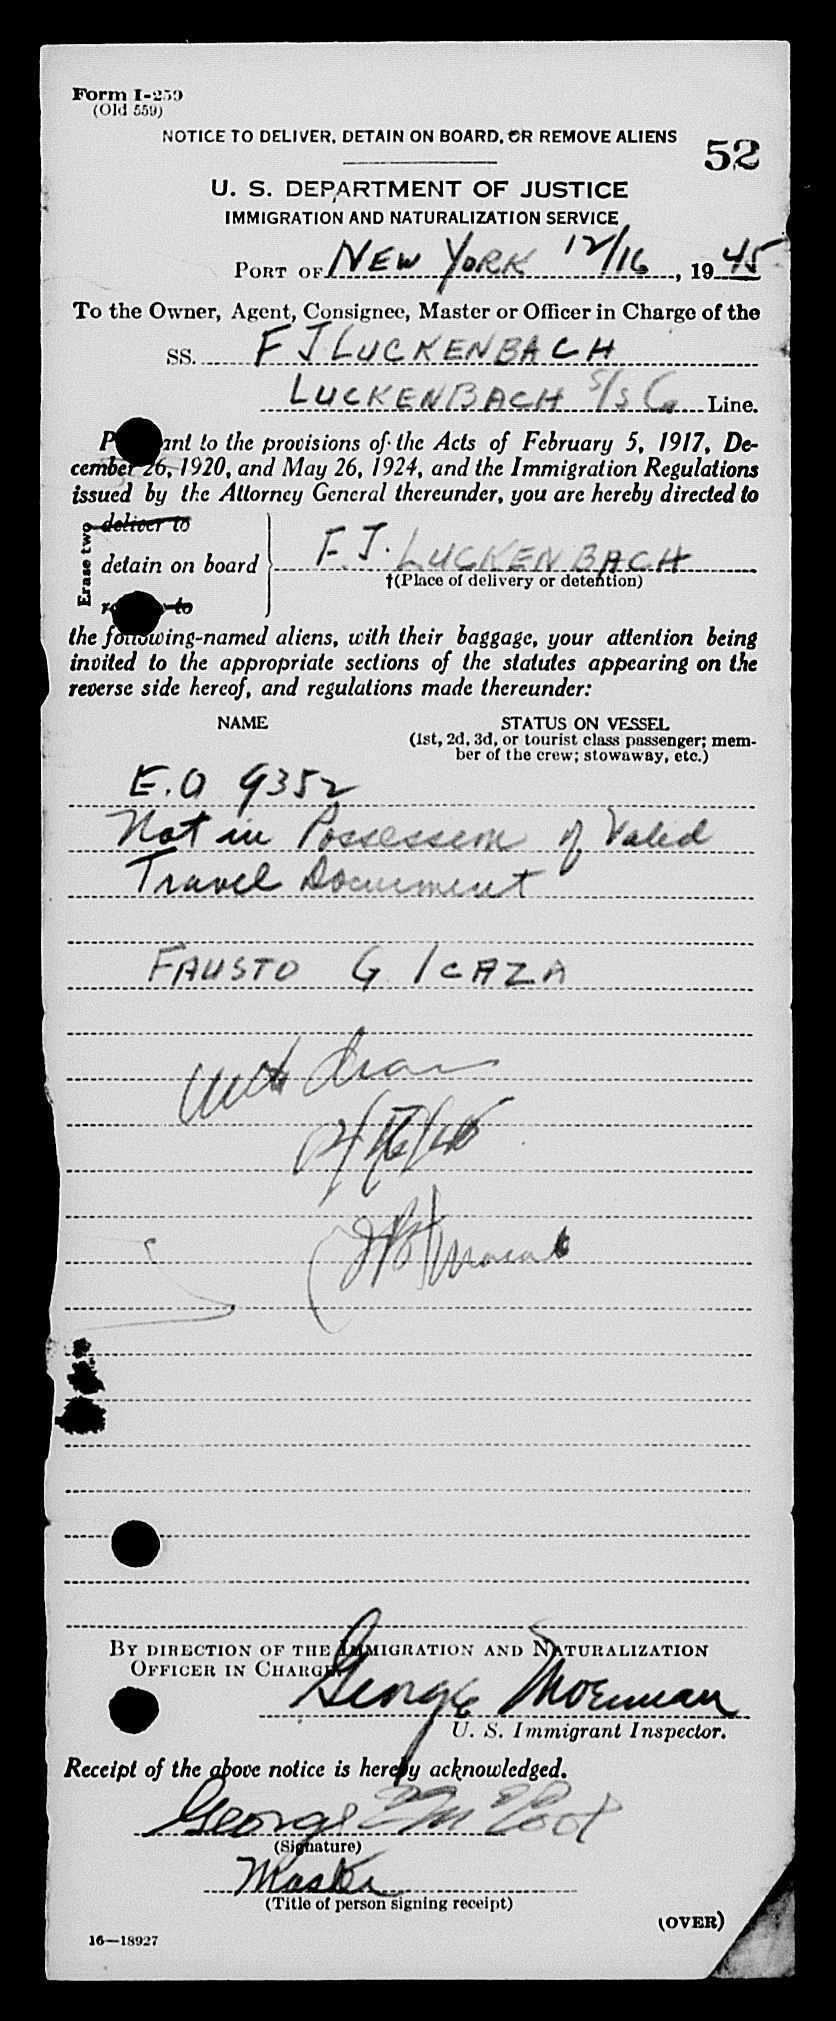 Form I-259
(Old 559)
NOTICE TO DELIVER, DETAIN ON BOARD, OR REMOVE ALIENS
52
U. S. DEPARTMENT OF JUSTICE
IMMIGRATION AND NATURALIZATION SERVICE
PORT OF NEW YORK 12/16, 1945
To the Owner, Agent, Consignee, Master or Officer in Charge of the
SS. F J LUCKENBACH
LUCKENBACH S/S Co Line.
P ant to the provisions of the Acts of February 5, 1917, De-
cember 26, 1920, and May 26, 1924, and the Immigration Regulations
issued by the Attorney General thereunder, you are hereby directed to
Erase two
deliver to
detain on board F. J. LUCKENBACH
†(Place of delivery or detention)
to
the following-named aliens, with their baggage, your attention being
invited to the appropriate sections of the statutes appearing on the
reverse side hereof, and regulations made thereunder:
NAME STATUS ON VESSEL
(1st, 2d, 3d, or tourist class passenger; mem-
ber of the crew; stowaway, etc.)
E.O 9352
Not in Possession of Valid
Travel Document
FAUSTO G ICAZA
BY DIRECTION OF THE IMMIGRATION AND NATURALIZATION
OFFICER IN CHARGE
George
U. S. Immigrant Inspector.
Receipt of the above notice is hereby acknowledged.
George
(Signature)
Master
(Title of person signing receipt)
(OVER)
16—18927